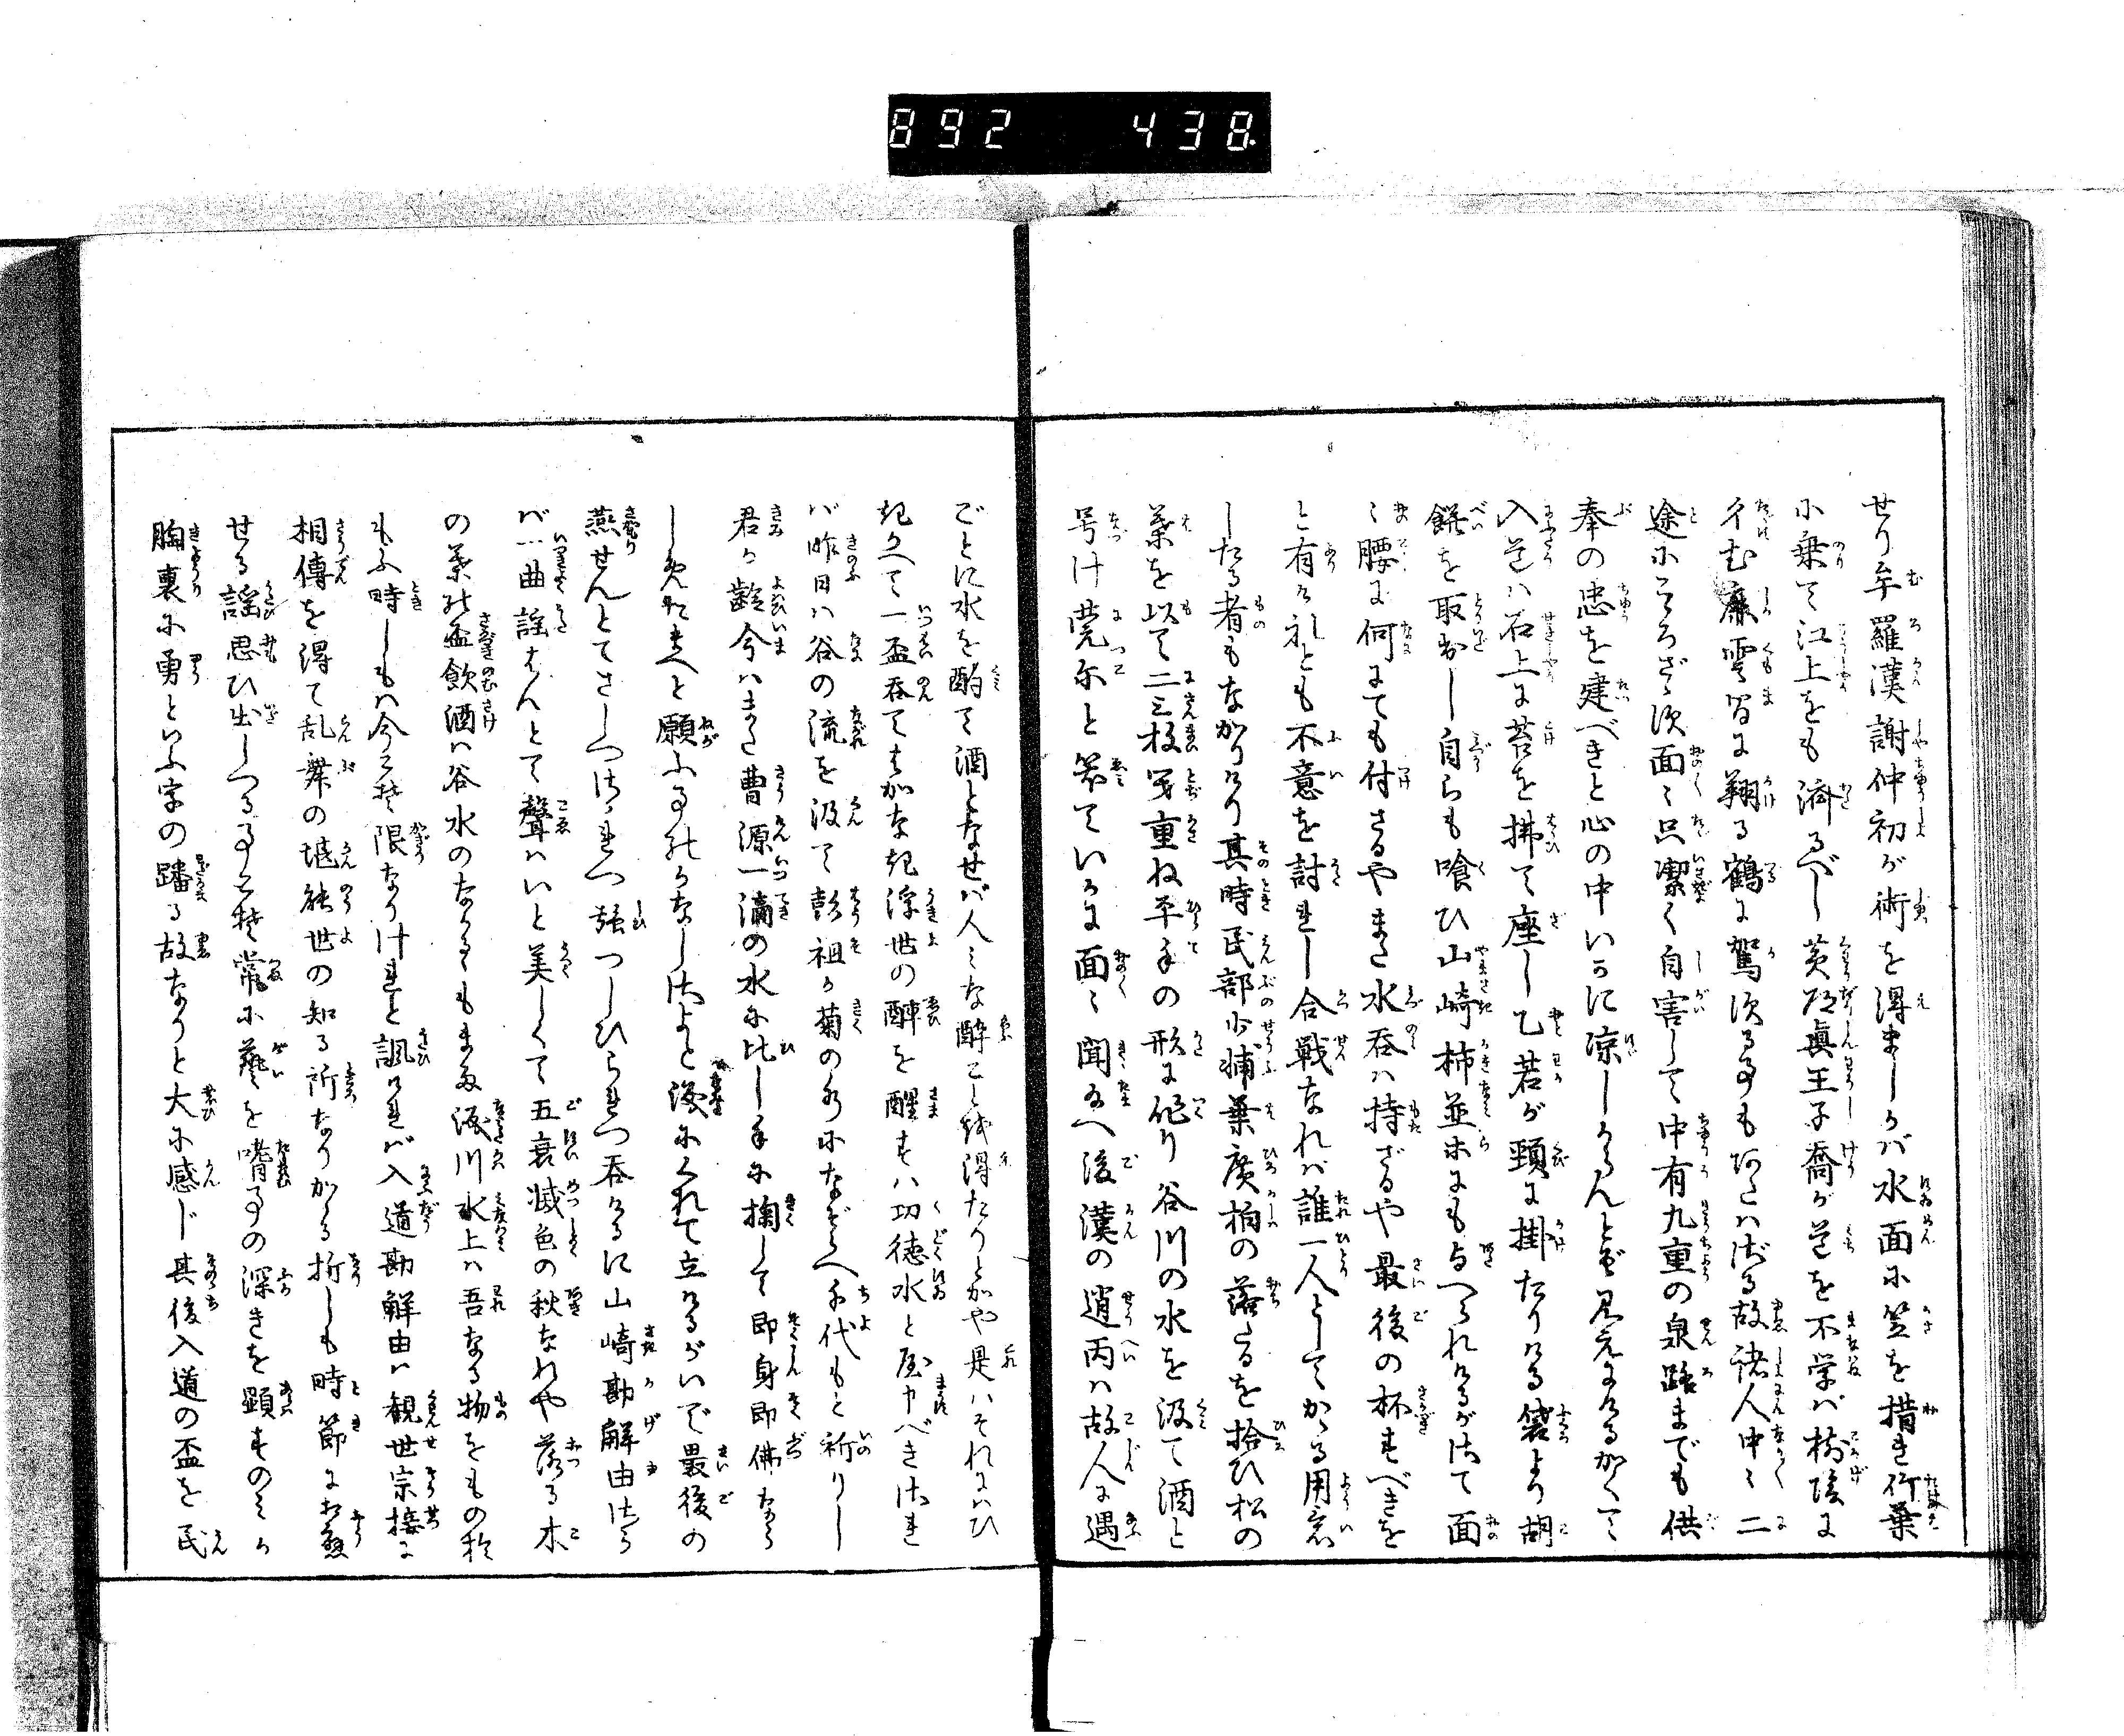 892 438.
せり牟羅漢謝仲初が術を得ましかバ水面に笠を措き竹葉
に乗て江上をも済るべし黄初真王子喬が道を不学バ樹陰に
イむ麻雲間に翔る鶴に駕する事もあたはざる故諸人中々二
途にわたらざれ面々只潔く自害して中有九重の泉路までも供
奉の忠を建べきと心の中いかに涼しかるらんとぞ見えにけるかくて
入道ハ石上に苔を拂て座し乙若が頸に掛たりける袋より胡
餅を取出し自らも喰ひ山崎柿並等にも与へられけるがさて面
々腰に何にても付さるやまた水呑ハ持ざるや最後の杯すべきを
と有けれとも不意を討れし合戦なれバ誰一人としてかゝる用意
したる者もなかりけり其時民部少輔葉廣柏の落たるを拾ひ松の
葉を以て二三枚突重ね平手の形に作り谷川の水を汲て酒と
号け莞尓と笑ていかに面々聞給へ後漢の逍丙ハ故人に遇
ごとに水を酌て酒となせバ人みな酔ことを得たりとかや是ハそれにハひ
きかへて一盃呑てはかなき浮世の酔を醒すハ功徳水と名申べきされ
バ昨日ハ谷の流を汲て彭祖が菊の水になぞらへ千代もと祈りし
君が齢今ハまた曹源一滴の水に比し手に掬して即身即佛なら
しめたまへと願ふ事のかなしさよと涙にくれて立けるがいで最後の
燕せんとてさしつさゝれつ強つしひられつ呑けるに山崎勘解由さら
バ一曲謡はんとて聲ハいと美しくて五衰滅色の秋なれや落る木
の葉の盃飲酒ハ谷水のながるゝもまた涙川水上ハ吾なる物をもの於
もふ時しもハ今こそ限なりけれと諷ひけれバ入道勘解由ハ観世宗接に
相傳を得て乱舞の堪能世の知る所なりかゝる折しも時節に相應
せる謡思ひ出しつる事こそ常に藝を嗜事の深きを顕すのミか
胸裏に勇といふ字の蹯る故なりと大に感じ其後入道の盃を民